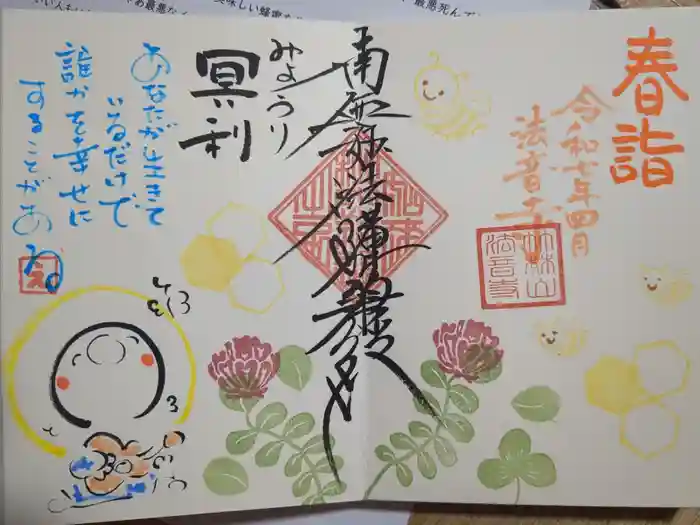 春詣
令和七年四月
法音寺
竹林山
法音寺
南無妙法蓮華経
みょうり
冥利
あなたが生きて
いるだけで
誰かを幸せに
することがあるね